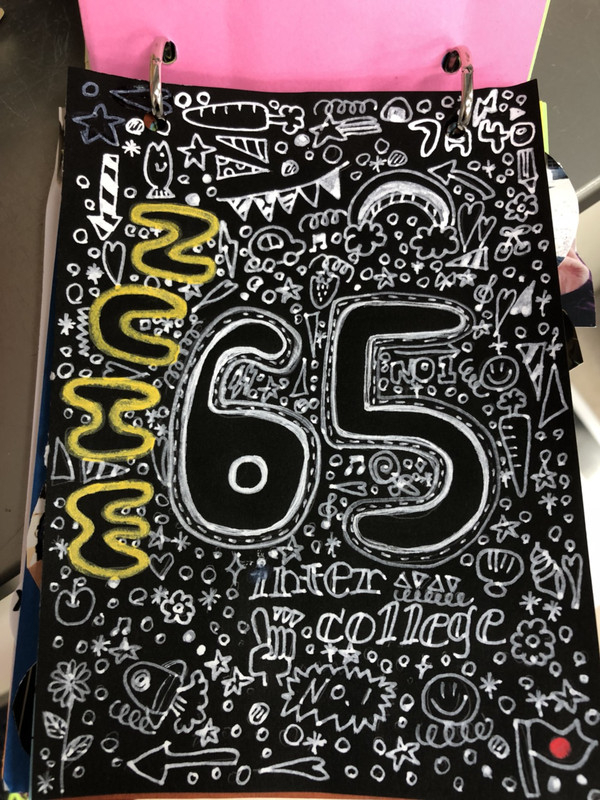 65
NO1
inter
college
No.1